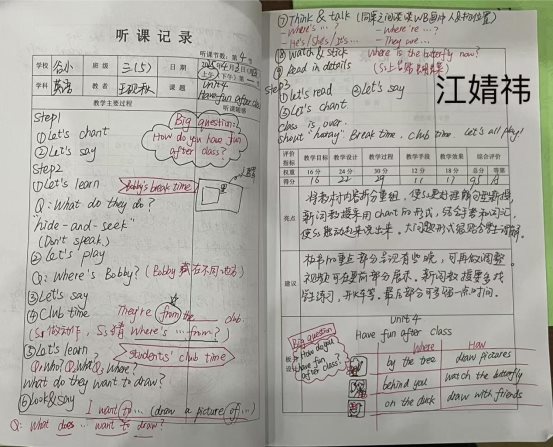 听课记录
听课节数：第4节
学校 合小 班级 三(5) 日期 2025年4月2日
(上午)(下午)第 节
学科 英语 教者 王砚秋 课题 Unit4
Have fun after class
教学主要过程 听课随感
Step1
① Let's chant
② Let's say
Big question:
How do you have fun after class?
Step2
① Let's learn
Bobby's break time
Q: What do they do?
"hide-and-seek"
(Don't speak)
② Let's play
Q: Where's Bobby? (Bobby藏在不同地方)
③ Let's say
④ Club time They're from the … club.
(Ss做动作, Ss猜 Where's … from?)
⑤ Let's learn
students' club time
Q: Who? Q: What? Q: Where?
What do they want to draw?
⑥ Look & say
I want to … (draw a picture of …)
Q: What does … want to draw?
⑦ Think & talk (同桌之间谈谈WB画中人物的位置)
- Where's …? - Where're …?
- He's / She's / It's … - They are …
⑧ Watch & stick Where is the butterfly now?
⑨ Read in details
Step3
① Let's read ② Let's say
③ Let's chant
Class is over.
Shout "hooray" Break time, club time. Let's all play!
江婧祎
评价指标 教学目标 教学设计 教学过程 教学手段 教学效果 综合评价
权重 16分 24分 30分 12分 18分 总分 等第
得分 16 22 29 11 91 A
亮点
新词教授采用chant的形式，结合手势和词汇，
建议
板书的重点部分呈现有些晚，可再做调整。
视频可在课前部分展示。新词教授要多找
学生练习，开火车等。最后部分可多留一点时间。
板书
Unit4
Have fun after class
Big question
How do you have fun after class?
Where How
by the tree draw pictures
behind you watch the butterfly
on the duck draw with friends